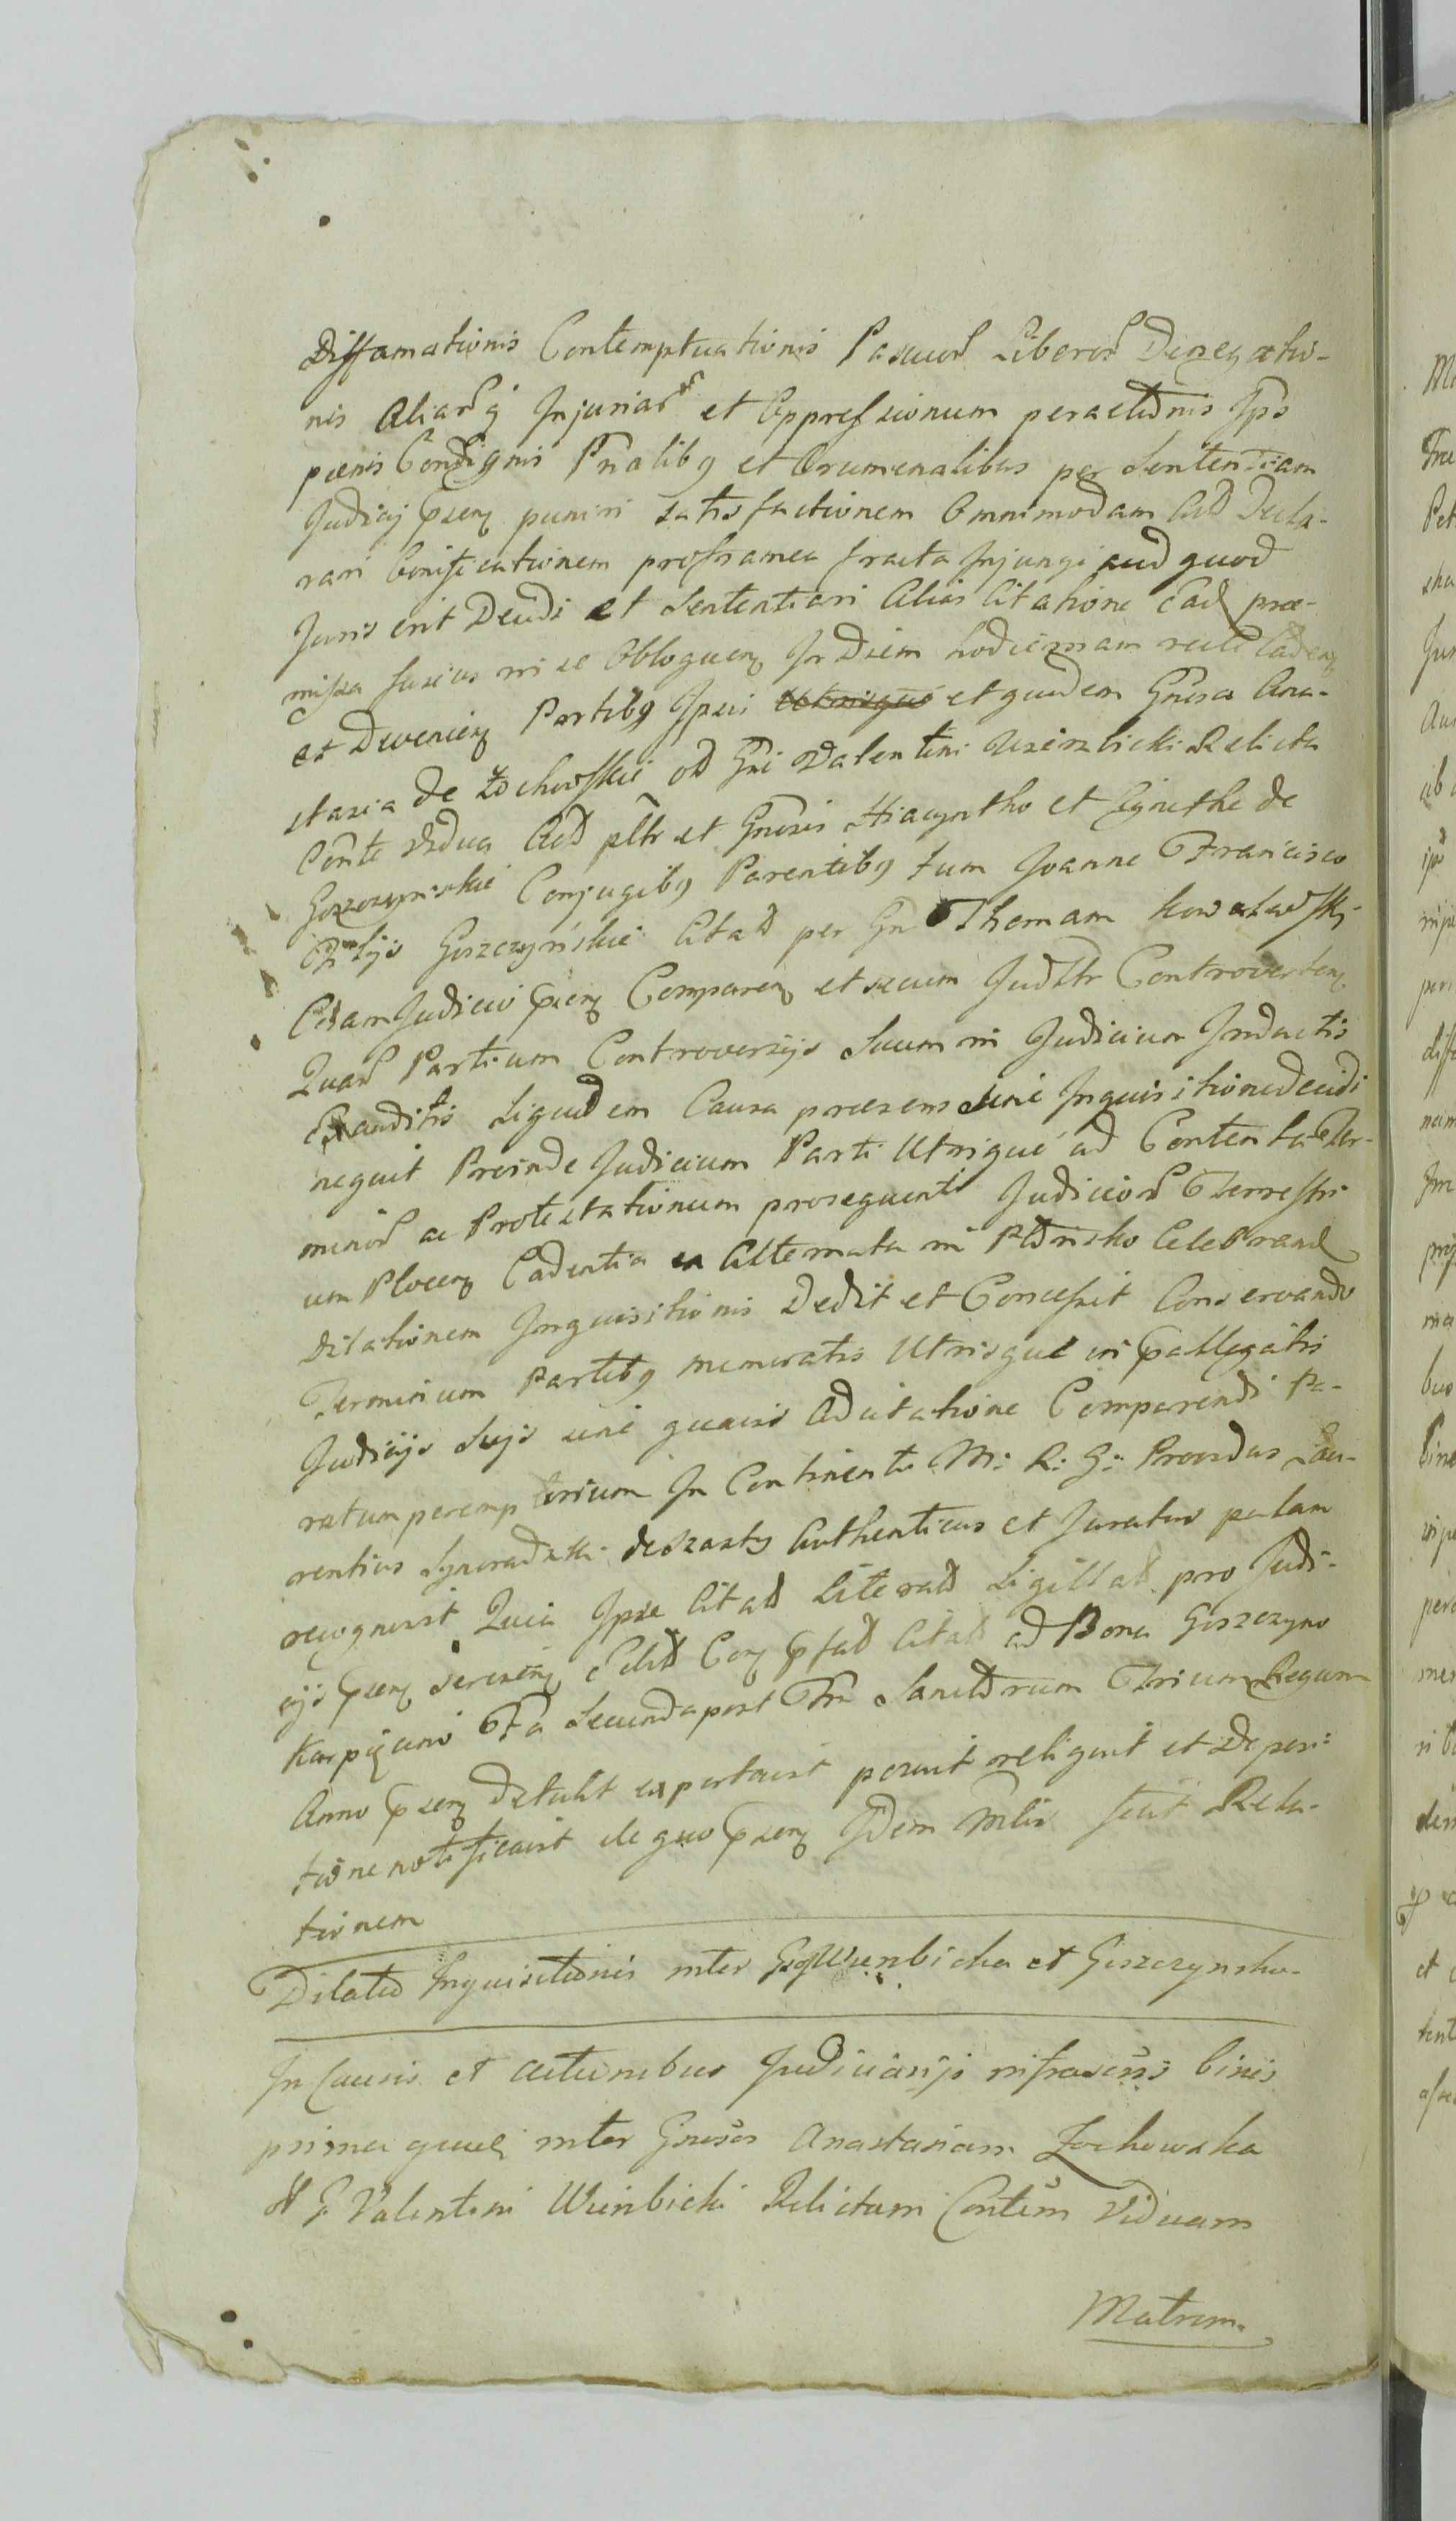 Diffamationis Contemptuationis Pascuor Liberor Denegatio-
nis Aliarq Injuriar et Oppressionum peractionis Ipso
pœnis Condignis Pnalibq et Crumenalibus per Sententiam
Judicij Psen puniri satisfactionem Omnimodam Actt Decla-
rari Bonificationem fracta Injungi aud quod
Juris erit Decidi et Sententiari Alias Citatione ead præ-
missa fusius in se Obloquen In Diem hodiernam recte Caden
et Devenien Partibq Ipsis Utrisque et quidem Gnosa Ana-
stasia de Żochowskie olt Gni Valentini Relicta
Conte vidua Actt pltr et Gnosis Hiacyntho et Agnethe de
Goszczynskie Conjugibq Parentibq tum Joanne Francisco
Filijs Goszczyńskie Citatt per Gn Thomam Kowalewski
Coram Judicio Psen Comparen et secum Judltr Controverten
Quar Partium Controversijs Suum in Judicium Inductis
Exauditis Siquidem Causa præsens sine Inquisitione decidi
nequit Proinde Judicium Parti Utrique ad Contenta Ter-
minor ac Protestationum prosequenti Judicior Terrestri-
um Plocen Cadentia ex Alternata in Płonsko Celebrand
Dilationem Inquisitionis Dedit et Concessit Conservando
Terminum Partibq memoratis Utrisque in Pallegatis
Judicijs Suis sine quavis Adcitatione Comparendi Pa-
ratum peremptorium In Continenti M: R: G: Providus Lau-
rentius de Szasty Authenticus et Juratus palam
recognovit Quia Ipse Citatt Literatt Sigillatt pro Judi-
cijs Psen Con Pfatt Citatt ad Bona Goszczyno
Karpięcino Fa Secunda post Fm Sanctorum Trium Regum
Anno Psen Detulit exportavit posuit reliquit et Deposi-
tione notificavit de quo Psen Idem Mlis fecit Rela-
tionem
Dilatio Inquisitionis inter Gsq Wiembicka et Goszczynskie
In Causis et Actionibus Judiciarijs infrascris binis
prima quid inter Gnosos Anastasiam Zochowska
olt G Valentini Wiembicki Relictam Contem Viduam
Matrem.